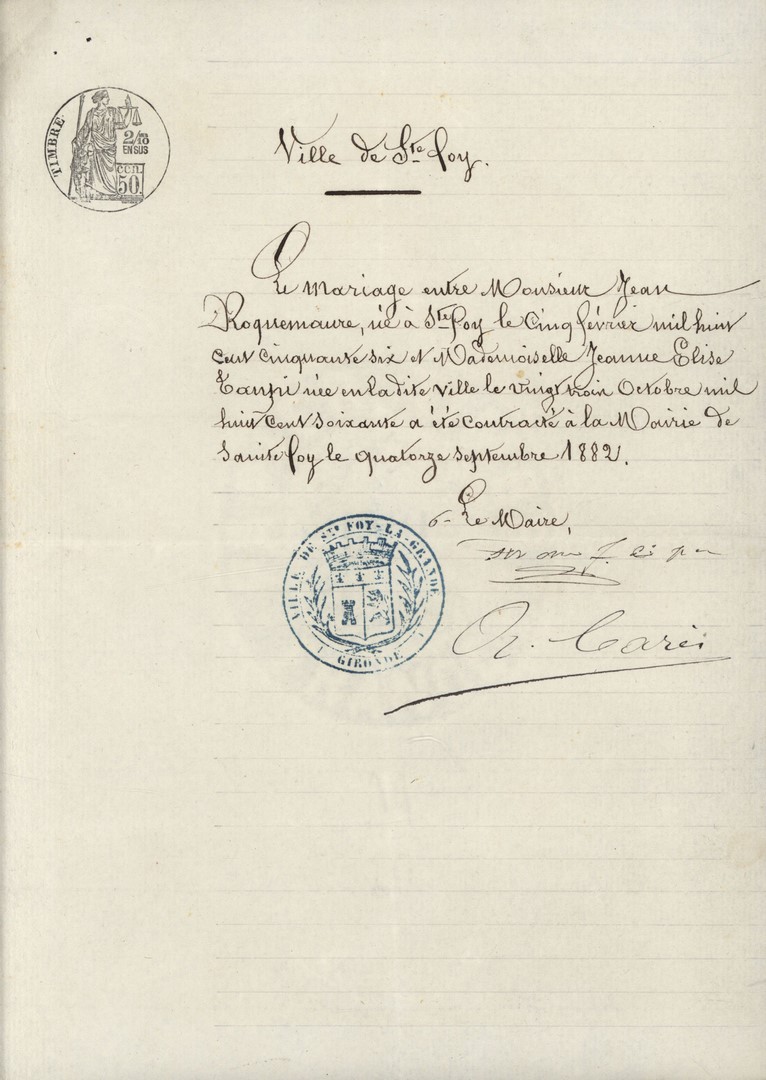 TIMBRE
2/10
EN SUS
cen.
50.
Ville de Ste foy.
Le mariage entre Monsieur Jean
Roquemaure, né à Ste foy le cinq février mil huit
cent cinquante six et Mademoiselle Jeanne Elise
née en la dite ville le vingt trois Octobre mil
huit cent soixante a été contracté à la Mairie de
Sainte foy le quatorze septembre 1882.
Le Maire,
VILLE DE STE FOY-LA-GRANDE
GIRONDE